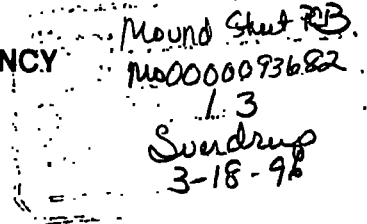 NCY
Mound Street PCB
MO0000093682
1.3
Sverdrup
3-18-96